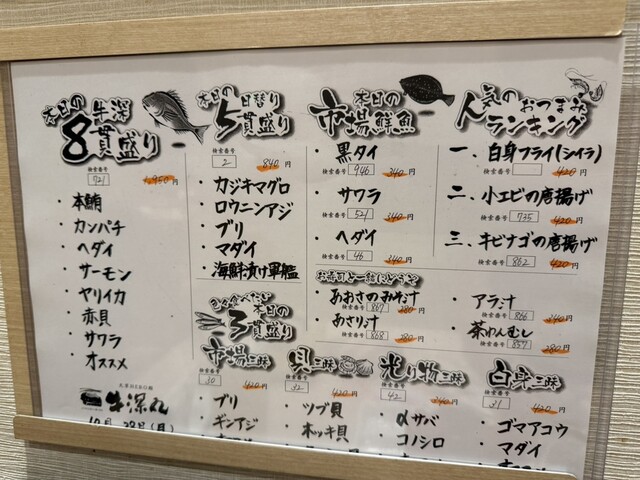 本日の
牛深
8貫盛り
検索番号
721
1,950円
・本鮪
・カンパチ
・ヘダイ
・サーモン
・ヤリイカ
・赤貝
・サワラ
・オススメ
牛深丸
10月 28日(月)
本日の
日替り
5貫盛り
検索番号
2
840円
・カジキマグロ
・ロウニンアジ
・ブリ
・マダイ
・海鮮漬け軍艦
本日の
市場鮮魚
・黒タイ
検索番号 946 340円
・サワラ
検索番号 524 340円
・ヘダイ
検索番号 46 340円
人気のおつまみ
ランキング
一、白身フライ(シイラ)
検索番号 420円
二、小エビの唐揚げ
検索番号 735 420円
三、キビナゴの唐揚げ
検索番号 862 420円
お寿司と一緒にどうぞ
・あおさのみそ汁
検索番号 867 280円
・あさり汁
検索番号 868 280円
・アラ汁
検索番号 866 340円
・茶わんむし
検索番号 857 280円
本日の
3貫盛り
市場三昧
検索番号
30
420円
・ブリ
・ギンアジ
貝三昧
検索番号
32
420円
・ツブ貝
・ホッキ貝
光り物三昧
検索番号
42
340円
・αサバ
・コノシロ
白身三昧
検索番号
31
420円
・ゴマアコウ
・マダイ